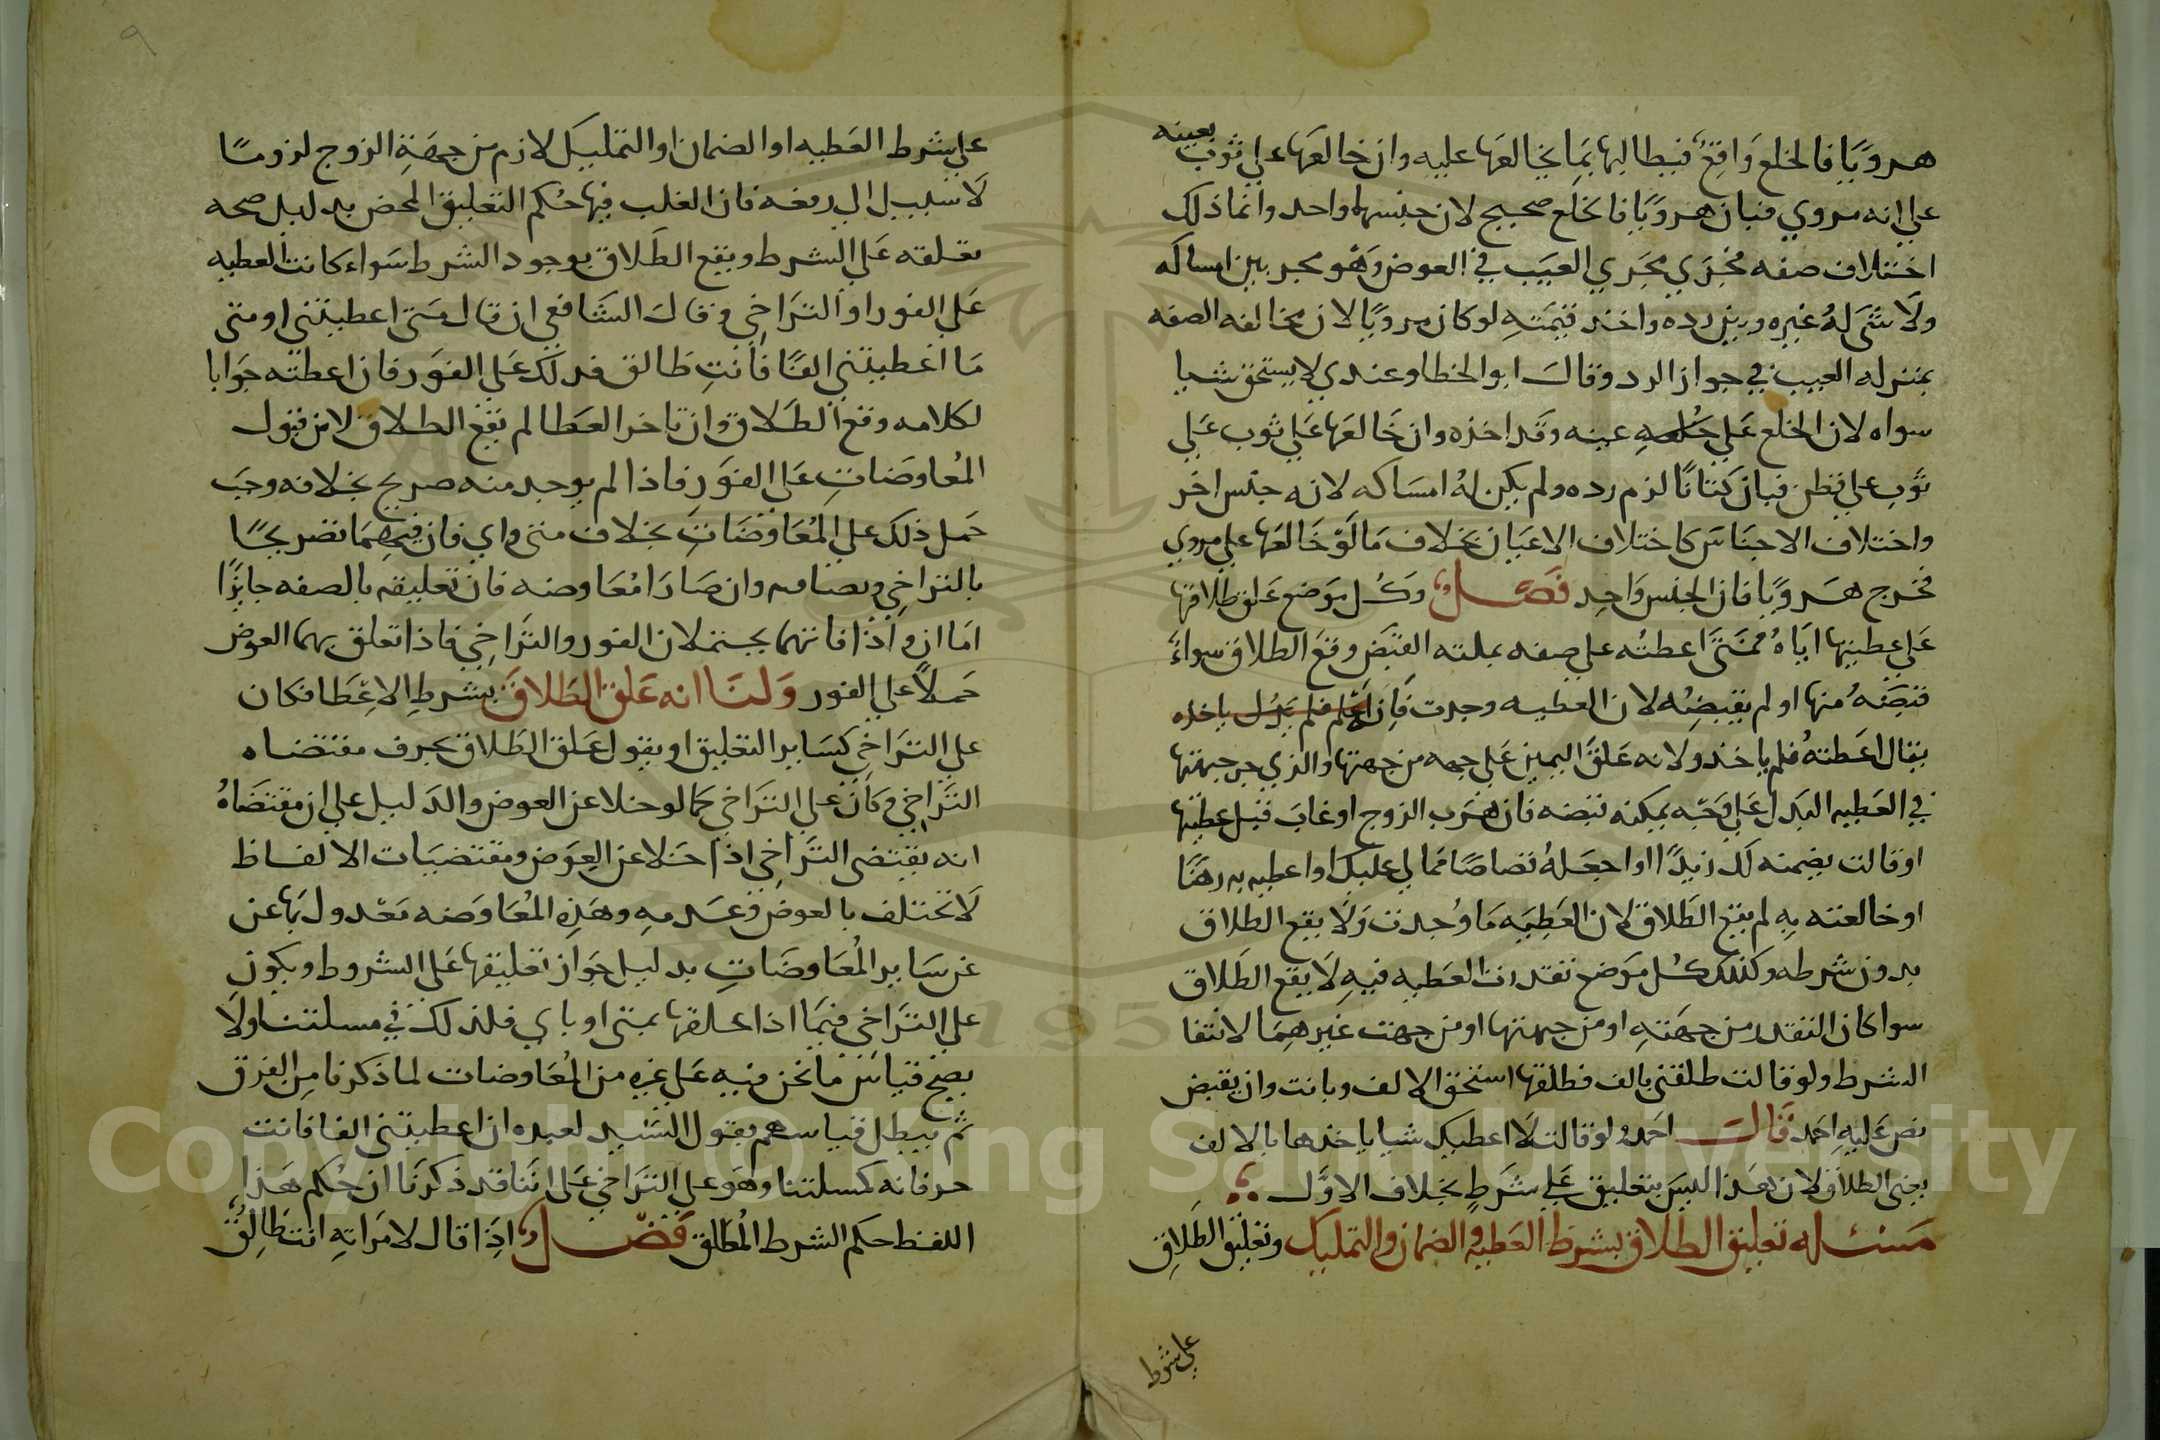 هرويا فالخلع واقع ويطالبها بما يخالعها عليه وان خالعها على ثوب بعينه
على انه مروي فبان هرويا فالخلع صحيح لان جنسهما واحد وانما ذلك
اختلاف صفه مجري مجري العيب في العوض وهو مخير بين امساكه
ولا شي له غيره وبين رده واخذ قيمته لو كان مرويا لان مخالفه الصفه
بمنزله العيب في جواز الرد وقال ابو الخطاب وعندي لا يستحق شيا
سواه لان الخلع على عينه وقد اخذه وان خالعها على ثوب على
ثوب على قطن فبان كتانا لزم رده ولم يكن له امساكه لانه جنس اخر
واختلاف الاجناس كاختلاف الاعيان بخلاف ما لو خالعها على مروي
فخرج هرويا فان الجنس واحد فصل وكل موضع علق طلاقها
على عطيتها اياه فمتى اعطته على صفه يمكنه القبض وقع الطلاق سواء
قبضه منها او لم يقبضه لان العطيه وجدت فان باخذه
يقال اعطته فلم ياخذ ولانه علق اليمين على جهه من جهتها والذي من جهتها
في العطيه البدل على وجه يمكنه قبضه فان هرب الزوج او غاب قبل عطيتها
او قالت يضمنه لك زيدا او اجعله قصاصا مما لي عليك او اعطيه به رهنا
او خالعته به لم يقع الطلاق لان العطيه ما وجدت ولا يقع الطلاق
بدون شرطه وكذلك كل موضع تعذرت العطيه فيه لا يقع الطلاق
سوا كان التعذر من جهته او من جهتها او من جهت غيرهما لانتفا
الشرط ولو قالت طلقني بالف فطلقها استحق الالف وبانت وان يقبض
نص عليه احمد قال احمد لو قالت لا اعطيك شيا ياخذها بالالف
يعني الطلاق لان هذا ليس بتعليق على شرط بخلاف الاول
مسئله تعليق الطلاق بشرط العطيه والضمان والتمليك وتعليق الطلاق
على شرط
٩
على شرط العطيه او الضمان او التمليك لازم من جهة الزوج لزوما
لا سبيل الى رفعه فان الغلب فيها حكم التعليق المحض بدليل صحه
تعلقه على الشرط ويقع الطلاق بوجود الشرط سواء كانت العطيه
على الفور او التراخي وقال الشافعي ان قال متى اعطيتني او متى
ما اعطيتني الفا فانت طالق فذلك على الفور فان اعطته جوابا
لكلامه وقع الطلاق وان تاخر العطا لم يقع الطلاق لان قبول
المعاوضات على الفور فاذا لم يوجد منه صريح بخلافه وجب
حمل ذلك على المعاوضات بخلاف متى واي فان فيهما تصريحا
بالتراخي ونصا فيه وان صارا معاوضه فان تعليقه بالصفه جايزا
اما ان واذا فانهما يحتملان الفور والتراخي فاذا تعلق بهما العوض
حملا على الفور ولنا انه علق الطلاق بشرط الاعطا فكان
على التراخي كساير التعليق او يقول علق الطلاق بحرف مقتضاه
التراخي وكان على التراخي كما لو خلا عن العوض والدليل على ان مقتضاه
انه يقتضي التراخي اذا خلا عن العوض ومقتضيات الالفاظ
لا تختلف بالعوض وعدمه وهذه المعاوضه معدول بها عن
عن ساير المعاوضات بدليل جواز تعليقها على الشروط ويكون
على التراخي فيما اذا علقها بمتى او باي فلذلك في مسلتنا ولا
يصح قياس ما نحن فيه على غيره من المعاوضات لما ذكرنا من الفرق
ثم يبطل قياسهم بقول السيد لعبده ان اعطيتني الفا فانت
حر فانه كمسلتنا وهو على التراخي على اننا قد ذكرنا ان حكم هذا
اللفظ حكم الشرط المطلق فصل اذا قال لامراته انت طالق